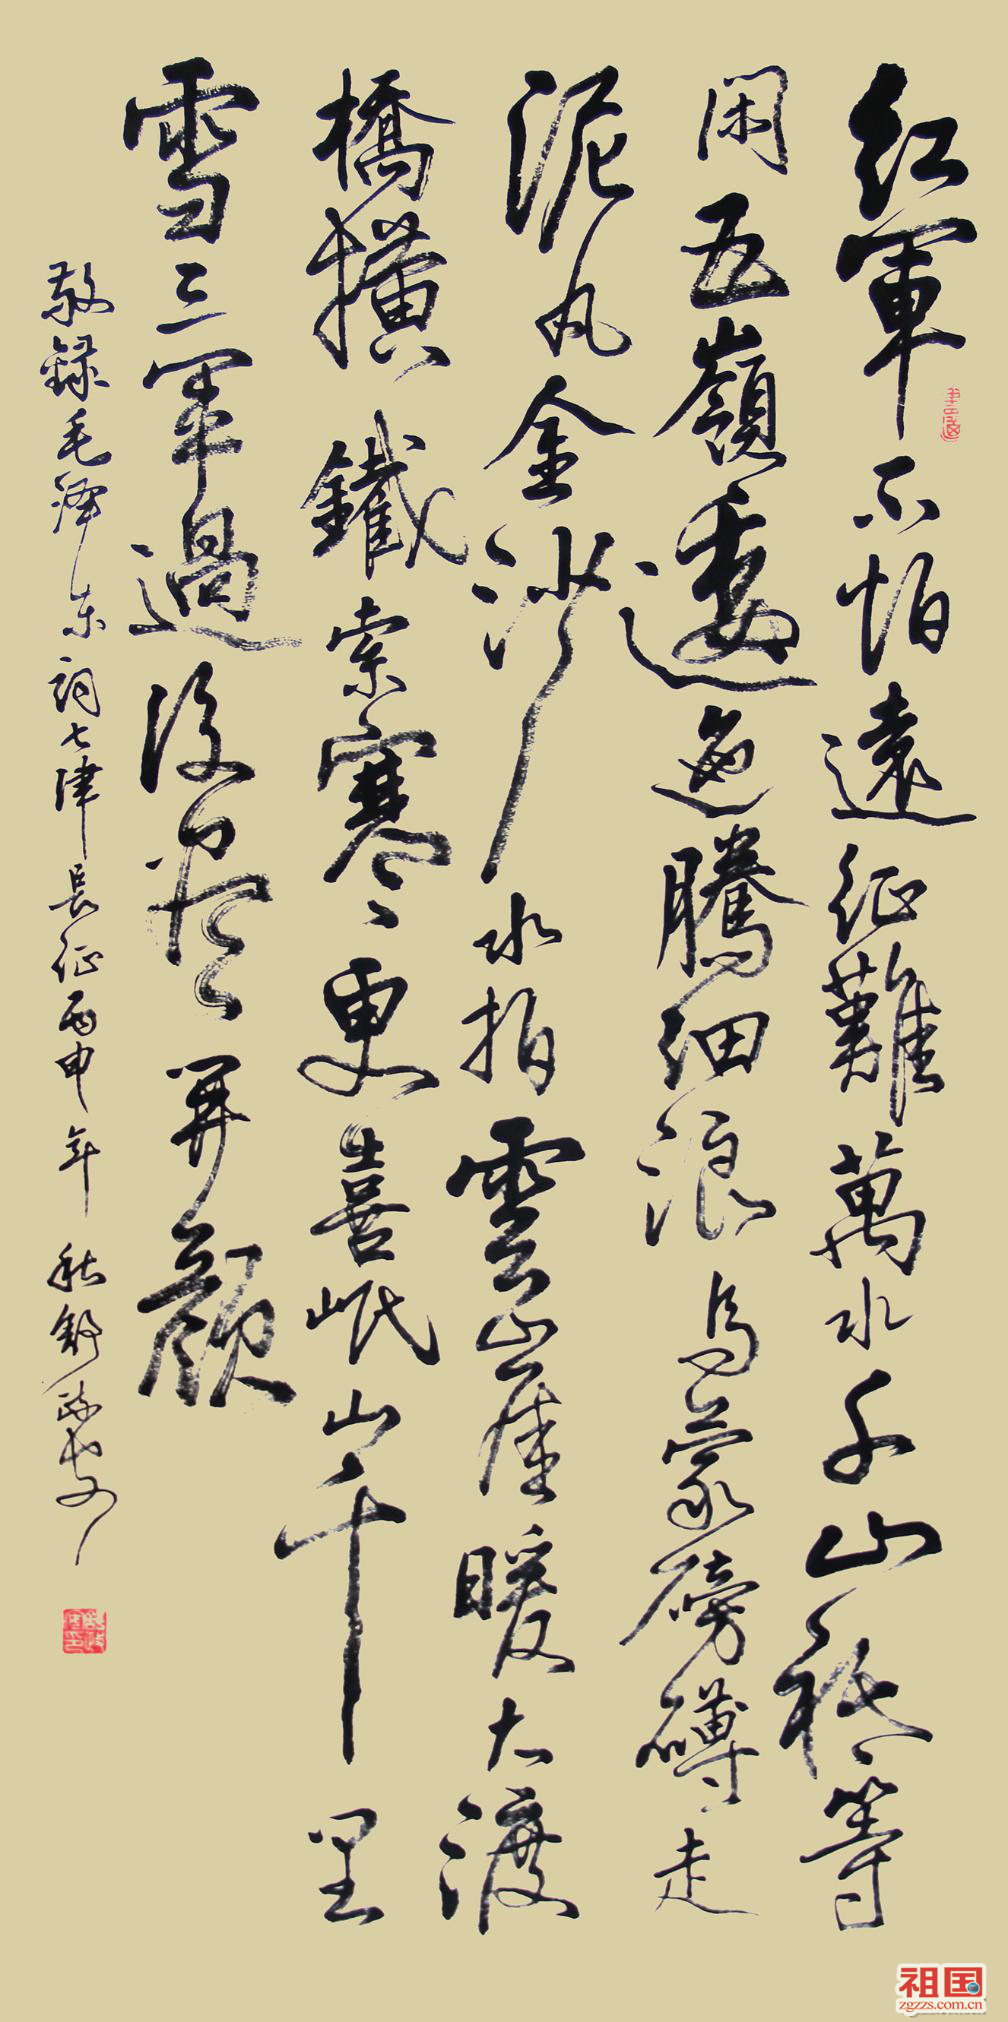 紅軍不怕遠征難萬水千山祗等
閑五嶺逶迤騰細浪烏蒙磅礴走
泥丸金沙水拍雲崖暖大渡
橋橫鐵索寒更喜岷山千里
雪三軍過後盡開顏
敬錄毛澤東詞七律長征丙申年秋舒
祖国
zgzzs.com.cn